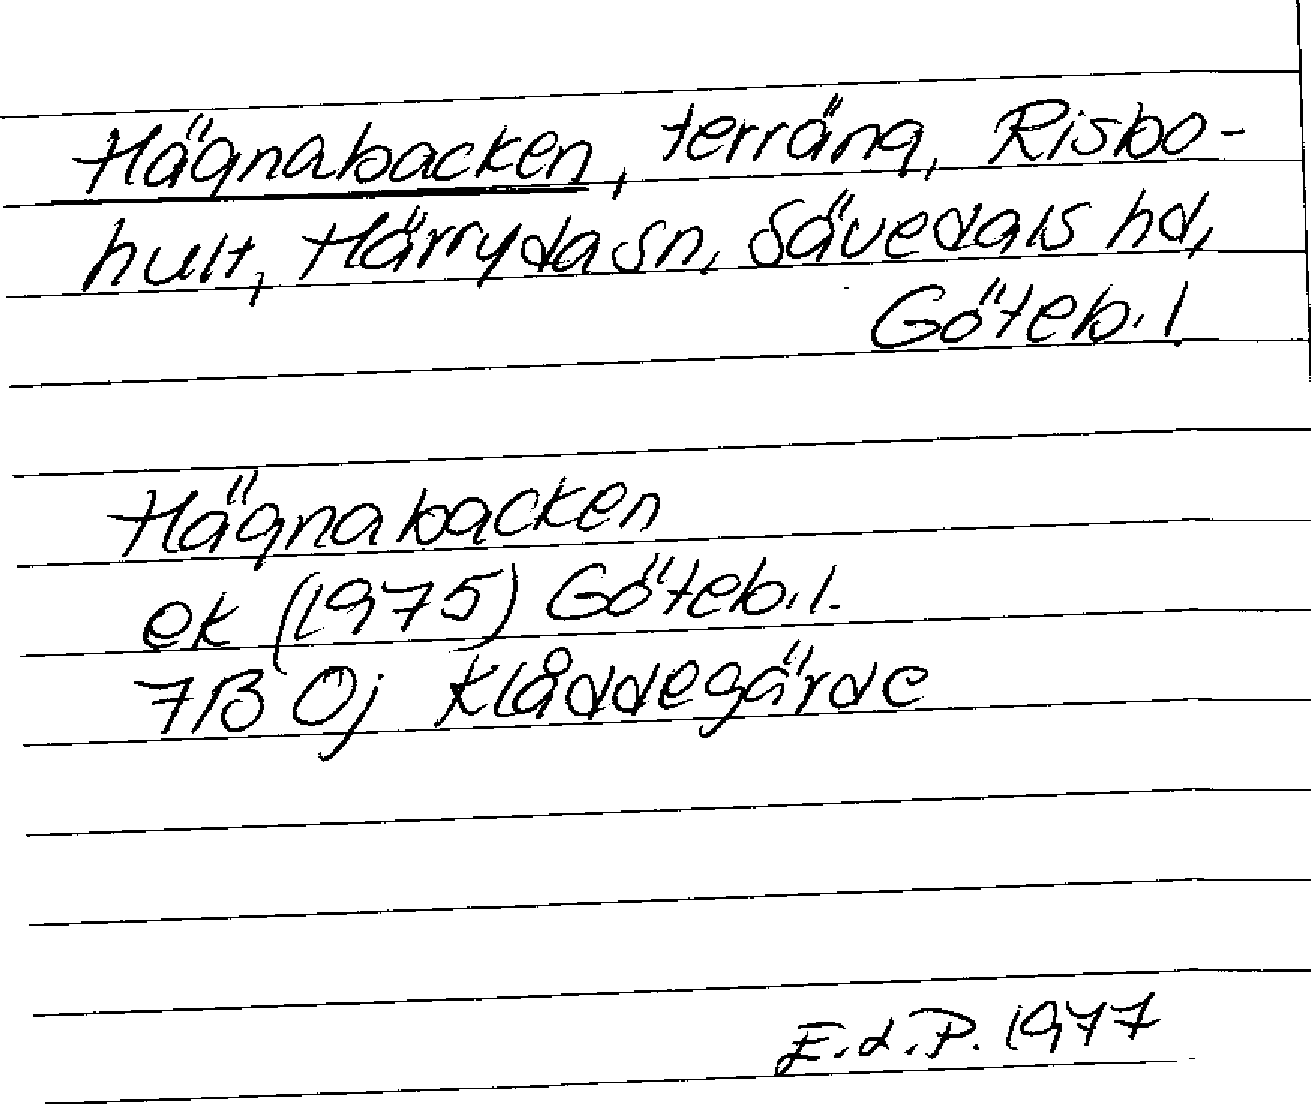 Hägnabacken, terräng, Risbo-
hult, Härryda sn, Sävedals hd,
Göteb. l.
Hägnabacken
ek (1975) Göteb. l.
7B 0j Klåddegärde
E.d.P. 1977